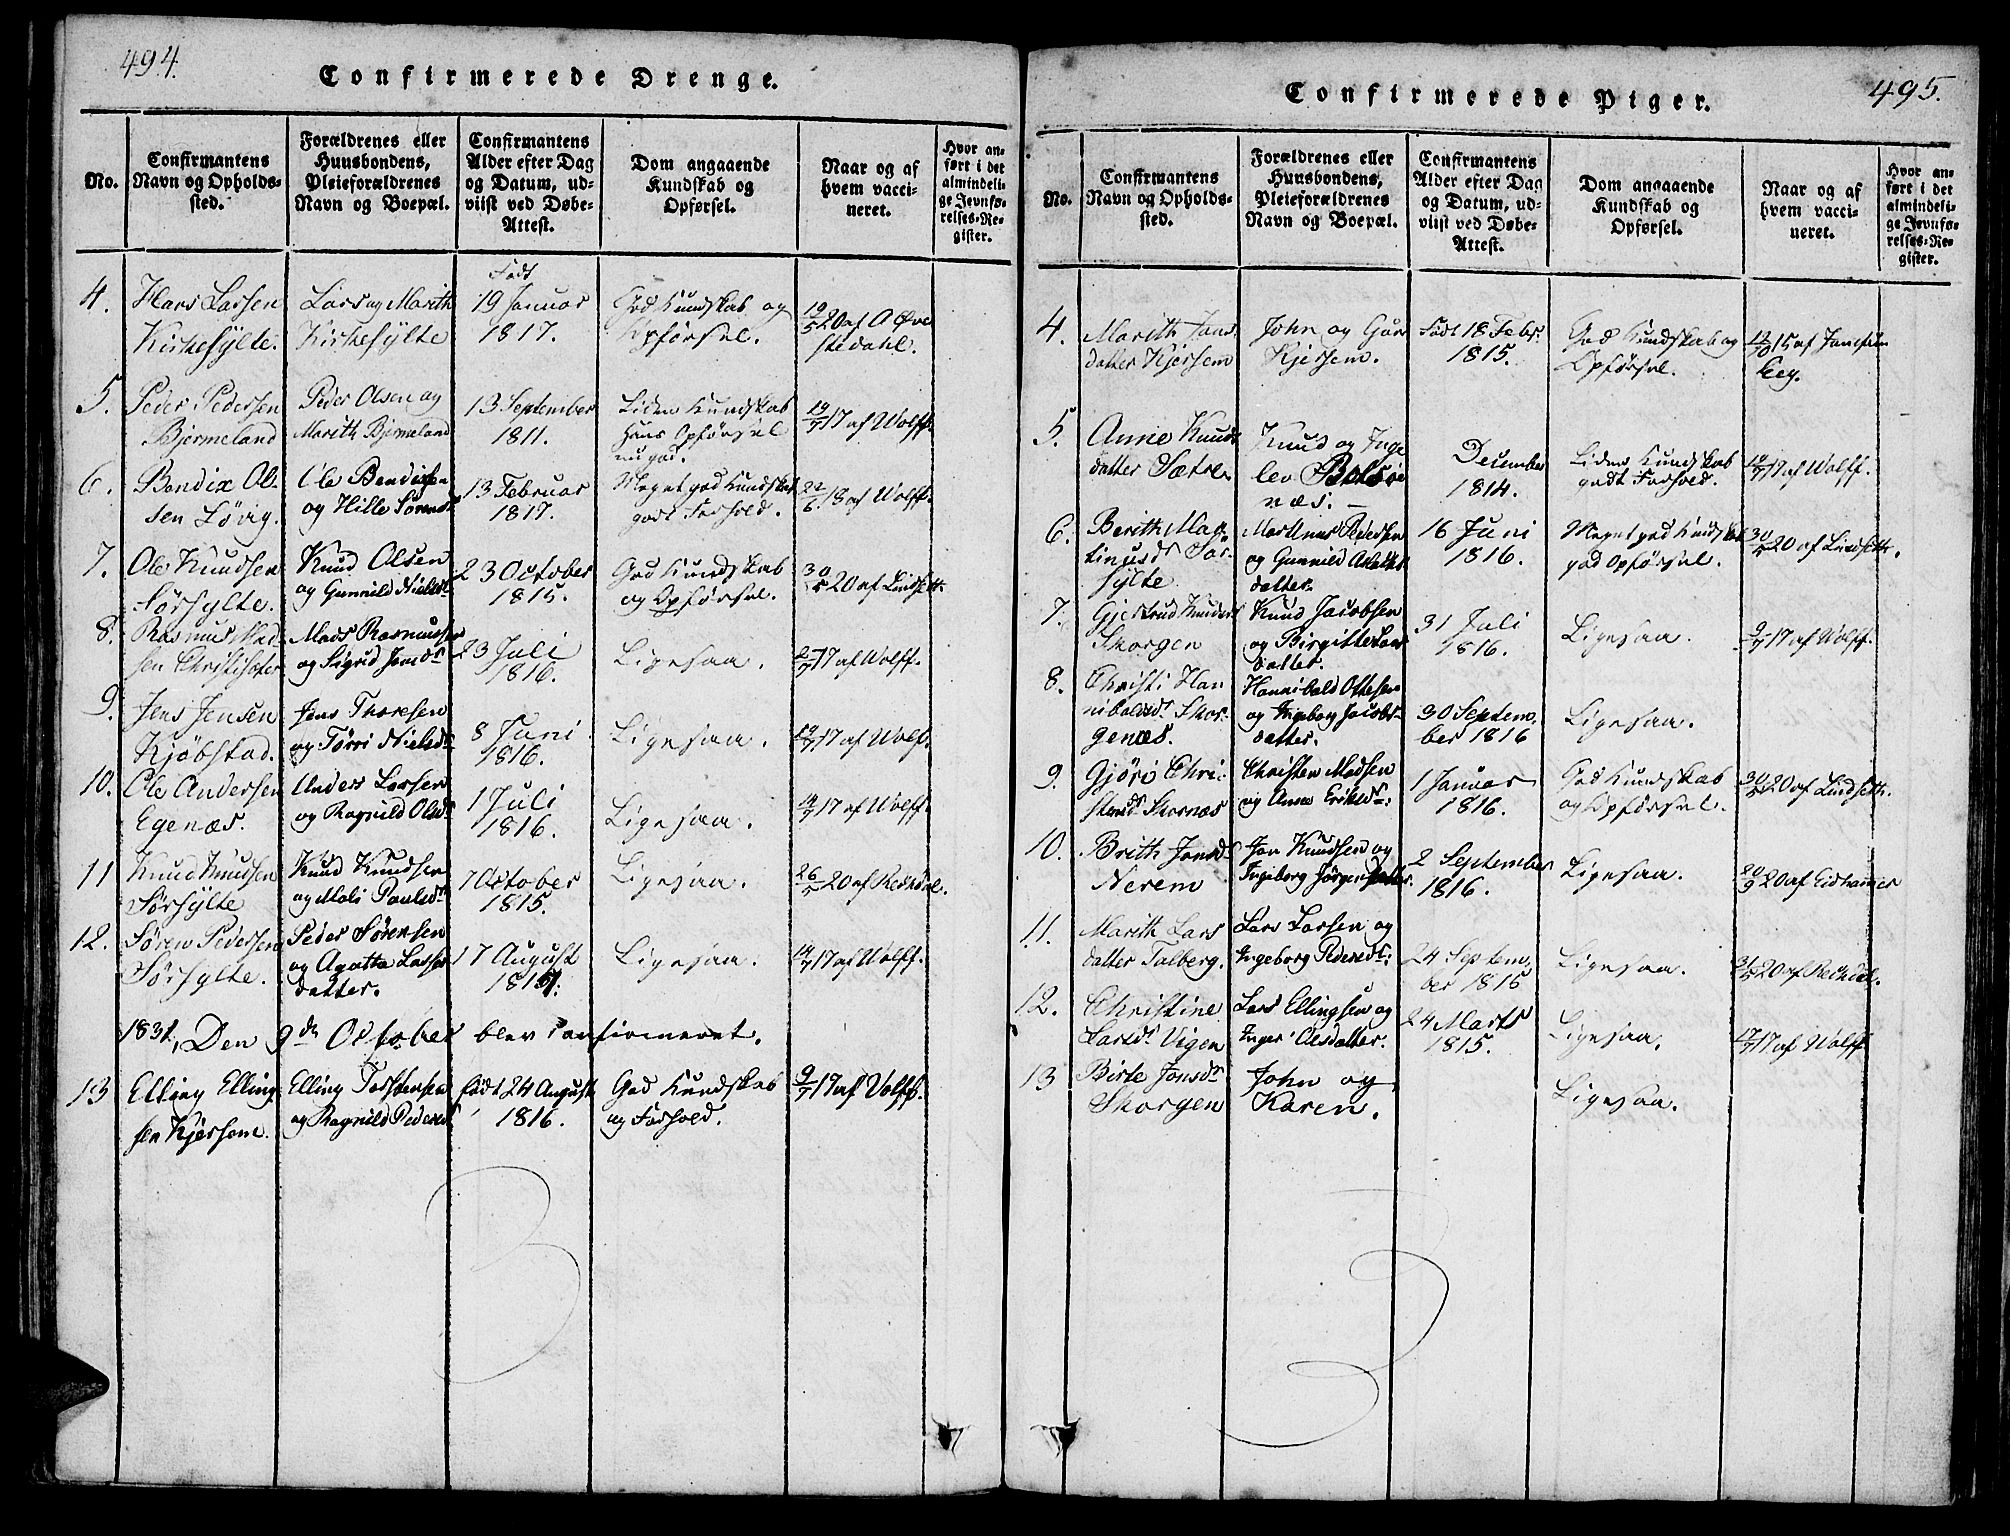 494.
Confirmerede Drenge.
No.
Confirmantens
Navn og Opholds-
sted.
Forældrenes eller
Huusbondens,
Pleieforældrenes
Navn og Boepæl.
Confirmantens
Alder efter Dag
og Datum, ud-
viist ved Døbe-
Attest.
Dom angaaende
Kundskab og
Opførsel.
Naar og af
hvem vacci-
neret.
Hvor an-
ført i det
almindeli-
ge Jevnfø-
relses-Re-
gister.
4.
Hans Larsen
Kirkesylte.
Lars og Marith
Kirkesylte
Født
19 Januar
1817.
God Kundskab og
Opførsel.
19/5 20 af A Øve
stedahl.
5.
Peder Pedersen
Bjermeland
Peder Olsen og
Marith Bjermeland
13 September
1811.
Liden Kundskab
hans Opførsel
nu god.
19/7 17 af Wolff.
6.
Bendix Ol-
sen Løvig.
Ole Bendixen
og Hille Sørensd.
13 Februar
1817.
Meget god Kundskab
godt Forhold.
22/6 18 af Wolff.
7.
Ole Knudsen
Sørsylte.
Knud Olsen
og Gunnild Nielsd.
23 October
1815.
God Kundskab
og Opførsel.
30/5 20 af Lindseth.
8.
Rasmus Mad-
sen
Mads Rasmussen
og Sigrid Jonsdr
23 Juli
1816.
Ligesaa.
17 af Wolff.
9.
Jens Jensen
Kjøbstad.
Jens Thoresen
og Tørri Nielsdr
8 Juni
1816.
Ligesaa.
19/7 17 af Wolff.
10.
Ole Andersen
Egenæs.
Anders Larsen
og Ragnild Olsd.
1 Juli
1816.
Ligesaa.
19/7 17 af Wolff.
11
Knud Knudsen
Sørsylte
Knud Knudsen
og Mali Paulsdr
7 October
1815.
Ligesaa.
26/5 20 af Rechdal.
12.
Søren Pedersen
Sørsylte.
Peder Sørensen
og Agatha Lars
datter.
17 August
Ligesaa.
19/7 17 af Wolff.
1831, Den 9de October blev Confirmeret.
13
Elling Elling-
sen Kjersem.
Elling Torstensen
og Ragnild Pedersd.
født 24 August
1816.
God Kundskab
og Forhold.
9/7 17 af Wolff.
495.
Confirmerede Piger.
No.
Confirmantens
Navn og Opholds-
sted.
Forældrenes eller
Huusbondens,
Pleieforældrenes
Navn og Boepæl.
Confirmantens
Alder efter Dag
og Datum, ud-
viist ved Døbe-
Attest.
Dom angaaende
Kundskab og
Opførsel.
Naar og af
hvem vacci-
neret.
Hvor an-
ført i det
almindeli-
ge Jevnfø-
relses-Re-
gister.
4.
Marith Jons
datter Kjersem
John og Guri
Kjersem.
Født 18 Febr.
1815.
God Kundskab og
Opførsel.
12/10 15 af
5.
Anne Knuds
datter Sætre.
Knud og Inge
lev Bolsøe
næs.
December
1814.
Liden Kundskab
godt Forhold.
19/7 17 af Wolff.
6.
Berith Mar-
tinusdr Sør-
sylte
Martinus Pedersen
og Gunnild
datter.
16 Juni
1816.
Meget god Kundskab
god Opførsel.
30/5 20 af Lindseth.
7.
Gjertrud Knudsd
Skorgen
Knud Jacobsen
og Birgitte Lars
datter.
31 Juli
1816.
Ligesaa.
9/7 17 af Wolff.
8.
Christi Han
nibalsdr Skor-
genæs.
Hannibald Ottesen
og Ingeborg Jacobs-
datter.
30 Septem-
ber 1816
Ligesaa.
9.
Gjøri Chri-
stensd. Skornæs
Christen Madsen
og Anne Eriksdr:
1 Januar
1816.
God Kundskab
og Opførsel.
30/5 20 af Lindseth.
10.
Brith Jonsd
Nerem
Jon Knudsen og
Ingeborg Jørgensdatter.
2 September
1816.
Ligesaa.
20/9 20 af Eidhammer
11.
Marith Lars
datter Talberg.
Lars Larsen og
Ingeborg Pedersdr:
24 Septem-
ber 1816
Ligesaa.
31/5 20 af Rechdal.
12.
Christine
Larsdr Vigen
Lars Ellingsen og
Inger Olsdatter.
24 Marts
1815.
Ligesaa.
17/7 17 af Wolff
13
Birte Jonsdr
Skorgen
John og
Karen.
Ligesaa.